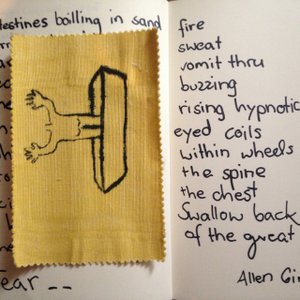 testines boilling in sand
fear --
fire
sweat
vomit thru
buzzing
rising hypnotic
eyed coils
within wheels
the spine
the chest
Swallow back
of the great
Allen Gin